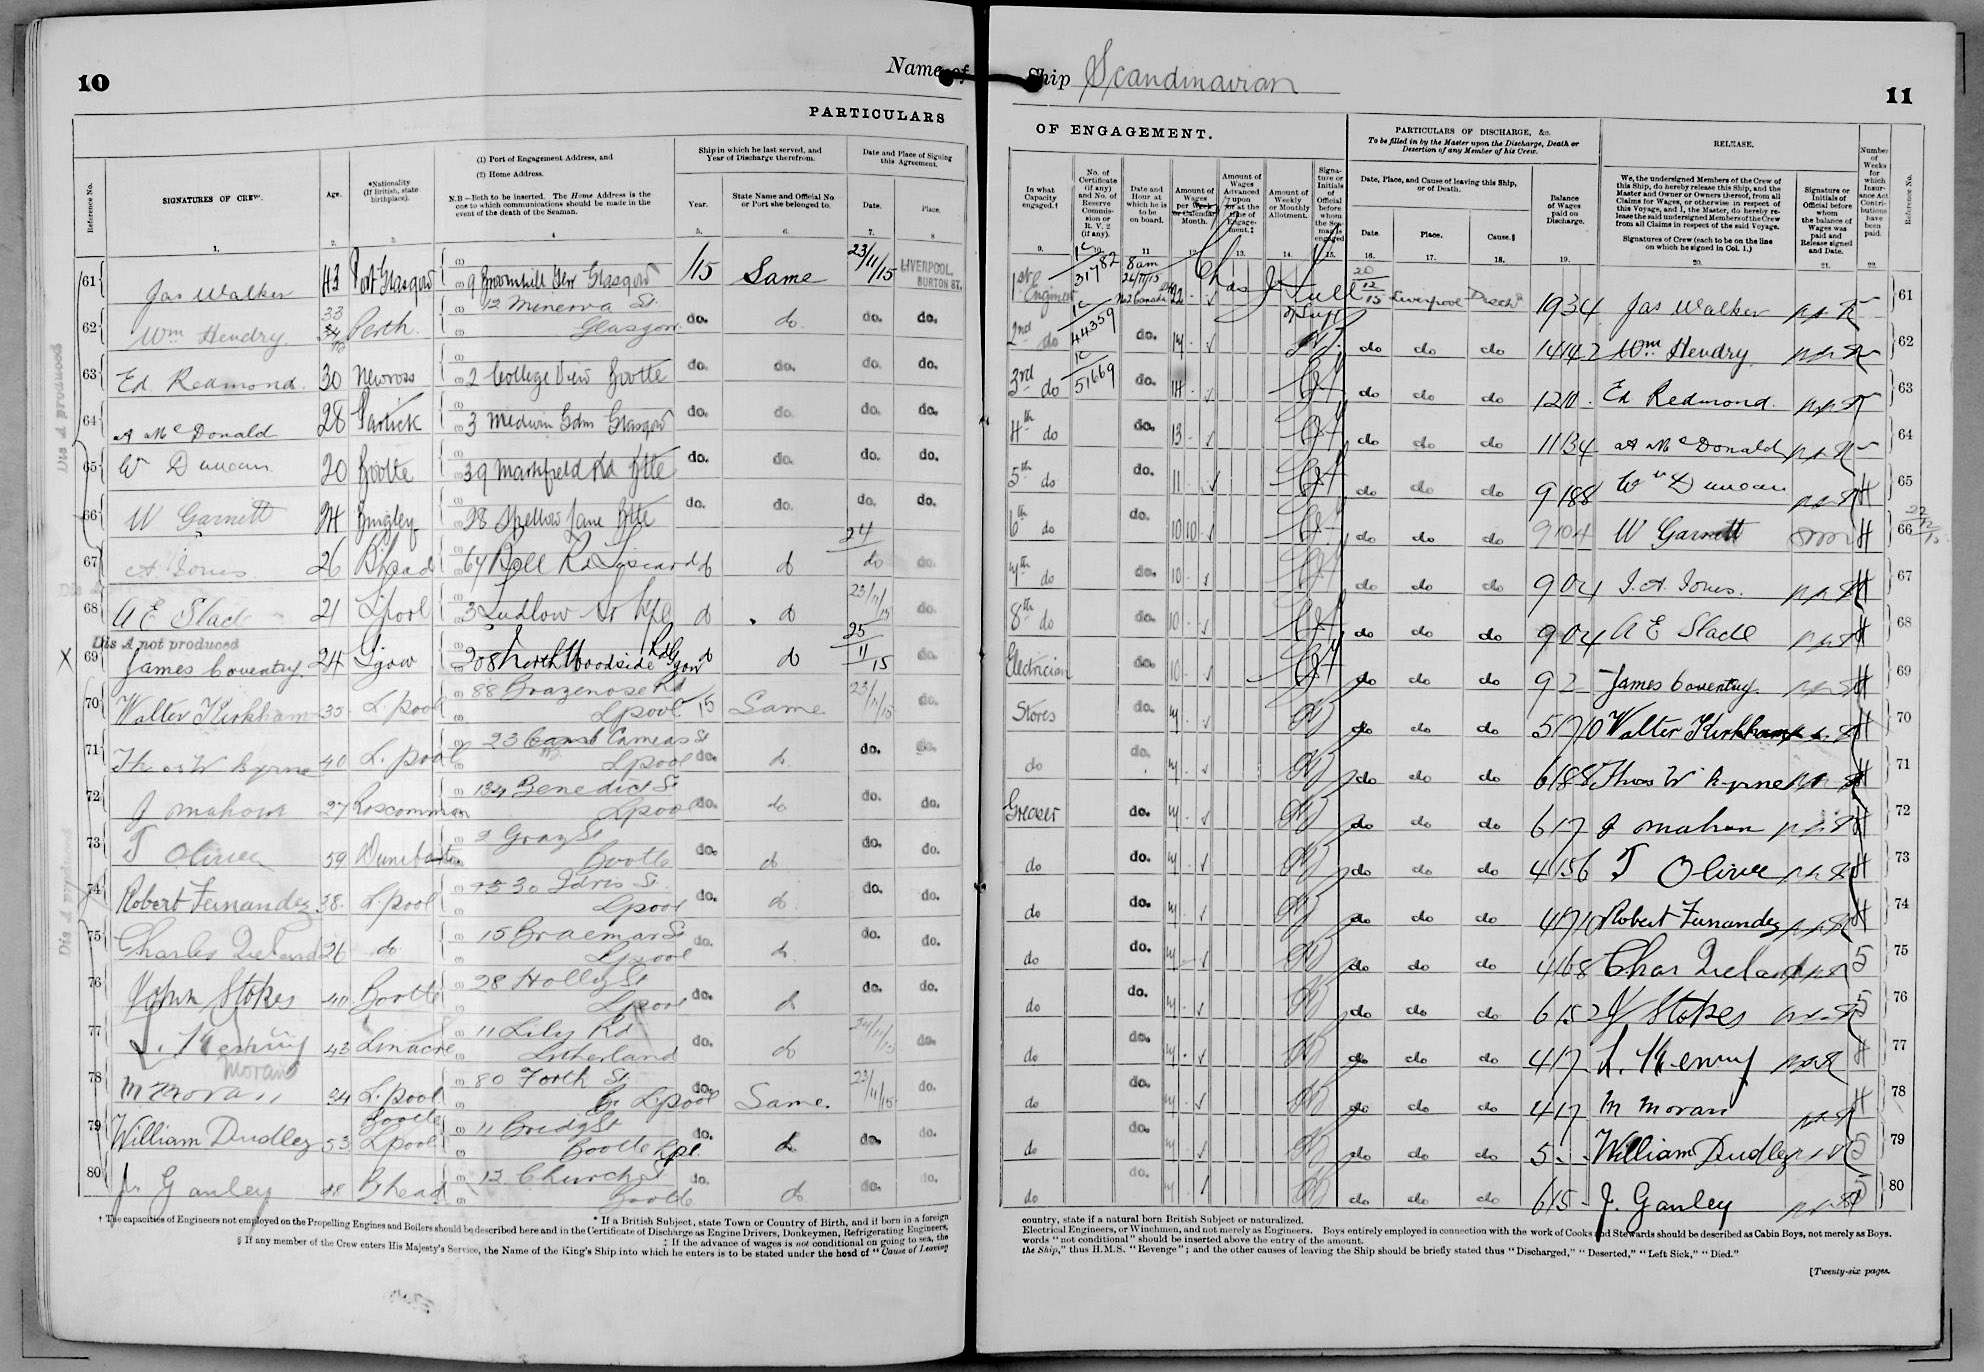 10
Name of
PARTICULARS
Reference No.
SIGNATURES OF CREW.
Age.
*Nationality (If British, state birthplace).
(1) Port of Engagement Address, and
(2) Home Address.
N.B—Both to be inserted. The Home Address is the one to which communications should be made in the event of the death of the Seaman.
Ship in which he last served, and Year of Discharge therefrom.
Year.
State Name and Official No. or Port she belonged to.
Date and Place of Signing this Agreement.
Date.
Place.
1. 2. 3. 4 5. 6. 7. 8
61 Jas Walker 43 Port Glasgow 9 Broomhill Terr Glasgow /15 Same 23/11/15 LIVERPOOL, BURTON ST.
62 Wm Hendry 33 Perth 12 Minerva St. Glasgow do. do. do. do.
63 Ed Redmond. 30 Newross 2 College View Bootle do. do. do. do.
64 A McDonald 28 Partick 3 Medwin Gdns Glasgow do. do. do. do.
65 W Duncan 20 Bootle 39 Markfield Rd Btle do. do. do. do.
66 W Garnett 24 Bingley 28 Spellow Lane Btle do. do. do. do.
67 A Jones 26 B'head 67 Poll Rd Liscard do do 24 do do.
68 A E Slade 21 L'pool 3 Ludlow St Lpl do do 23/11/15 do.
Dis A not produced
69 James Coventry. 24 Glgow 208 North Woodside Rd Glgow do do 25/11/15 do.
70 Walter Kirkham 35 L.pool 88 Brazenose Rd Lpool 15 Same 23/11/15 do.
71 Thos W Byrne 40 L.pool 23 Cameas St Lpool do. do. do. do.
72 J Mahon 27 Roscommon 134 Benedict St Lpool do. do do. do.
73 T Oliver 59 Dumbarton 2 Gray St Bootle do. do do. do.
74 Robert Fernandez 38. L.pool 30 Idris St. Lpool do. do. do. do.
75 Charles Ireland 26 do 15 Braemar St Lpool do. do. do. do.
76 John Stokes 40. Bootle 28 Holly St Lpool do. do do. do.
77 L. Henry 43 Linacre 11 Lily Rd Litherland do. do 24/11/15 do.
Moran
78 M Moran 34 L.pool 80 Forth St L'pool do. Same. 23/11/15 do.
79 William Dudley 53 Bootle Lpool 11 Bridge St Bootle Lpl. do. do do. do.
80 J. Ganley 48 B'head 12 Church St Bootle do. do do. do.
Dis A produced
Dis A produced
* If a British Subject, state Town or Country of Birth, and if born in a foreign
† The capacities of Engineers not employed on the Propelling Engines and Boilers should be described here and in the Certificate of Discharge as Engine Drivers, Donkeymen, Refrigerating Engineers,
‡ If the advance of wages is not conditional on going to sea, the
§ If any member of the Crew enters His Majesty's Service, the Name of the King's Ship into which he enters is to be stated under the head of "Cause of Leaving
Ship Scandinavian
11
OF ENGAGEMENT.
PARTICULARS OF DISCHARGE, &c.
To be filled in by the Master upon the Discharge, Death or Desertion of any Member of his Crew.
RELEASE.
In what Capacity engaged.†
No. of Certificate (if any) and No. of Reserve Commission or R. V. 2 (if any).
Date and Hour at which he is to be on board.
Amount of Wages per Week or Calendar Month.
Amount of Wages Advanced upon or at the time of Engagement.‡
Amount of Weekly or Monthly Allotment.
Signature or Initials of Official before whom the Seaman is engaged
Date, Place, and Cause of leaving this Ship, or of Death.
Date. Place. Cause.§
Balance of Wages paid on Discharge.
We, the undersigned Members of the Crew of this Ship, do hereby release this Ship, and the Master and Owner or Owners thereof, from all Claims for Wages, or otherwise in respect of this Voyage, and I, the Master, do hereby release the said undersigned Members of the Crew from all Claims in respect of the said Voyage.
Signatures of Crew (each to be on the line on which he signed in Col. 1.)
Signature or Initials of Official before whom the balance of Wages was paid and Release signed and Date.
Number of Weeks for which Insurance Act Contributions have been paid.
Reference No.
9. 10. 11 12. 13. 14. 15. 16. 17. 18. 19. 20. 21. 22.
1st Engineer 31782 8am 26/11/15 No 2 Canada 22 20/12/15 Liverpool Dischd 19 3 4 Jas Walker 61
2nd do 44359 do. 17 do do do 14 14 2 Wm Hendry 62
3rd do 51669 do. 14 do do do 12 11 Ed Redmond. 63
4th do do. 13 do do do 11 3 4 A McDonald 64
5th do do. 11 do do do 9 18 8 Wm Duncan 65
6th do do. 10 10 do do do 9 10 4 W Garnett 66
7th do do. 10 do do do 9 0 4 J. A. Jones. 67
8th do do. 10 do do do 9 0 4 A E Slade 68
Electrician do. 10 do do do 9 2 James Coventry. 69
Stores do. do do do 5 17 0 Walter Kirkham 70
do do. do do do 6 18 8 Thos W Byrne 71
Greaser do. do do do 6 17 J Mahon 72
do do. do do do 4 15 6 T Oliver 73
do do. do do do 4 17 10 Robert Fernandez 74
do do. do do do 4 16 8 Chas Ireland 5 75
do do. do do do 6 15 2 J Stokes 5 76
do do. do do do 4 17 L. Henry 77
do do. do do do 4 17 M Moran 78
do do. do do do 5 - - William Dudley 5 79
do do. do do do 6 15 - J. Ganley 5 80
country, state if a natural born British Subject or naturalized.
Electrical Engineers, or Winchmen, and not merely as Engineers. Boys entirely employed in connection with the work of Cooks and Stewards should be described as Cabin Boys, not merely as Boys.
words "not conditional" should be inserted above the entry of the amount.
the Ship," thus H.M.S. "Revenge"; and the other causes of leaving the Ship should be briefly stated thus "Discharged," "Deserted," "Left Sick," "Died."
[Twenty-six pages.